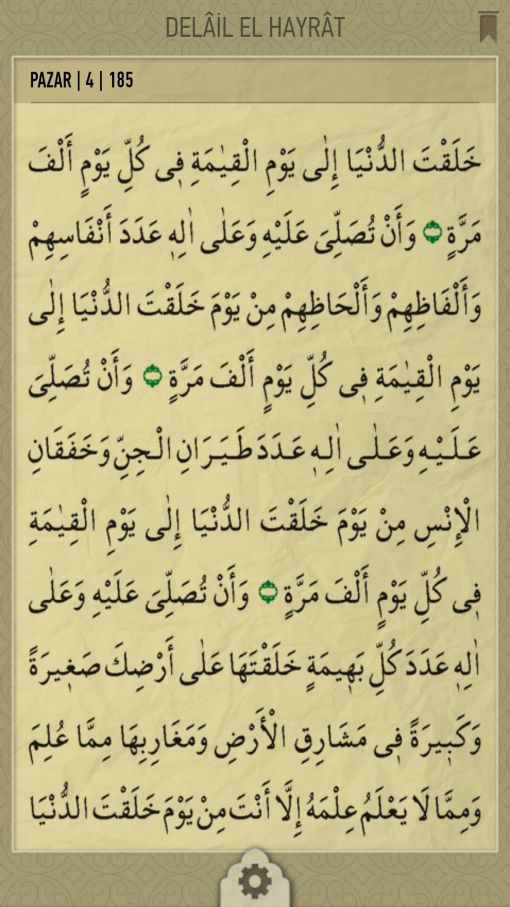 DELÂİL EL HAYRÂT
PAZAR | 4 | 185
خَلَقْتَ الدُّنْيَا إِلٰى يَوْمِ الْقِيٰمَةِ فِى كُلِّ يَوْمٍ أَلْفَ
مَرَّةٍ ۝ وَأَنْ تُصَلِّىَ عَلَيْهِ وَعَلٰى اٰلِهٖ عَدَدَ أَنْفَاسِهِمْ
وَأَلْفَاظِهِمْ وَأَلْحَاظِهِمْ مِنْ يَوْمَ خَلَقْتَ الدُّنْيَا إِلٰى
يَوْمِ الْقِيٰمَةِ فِى كُلِّ يَوْمٍ أَلْفَ مَرَّةٍ ۝ وَأَنْ تُصَلِّىَ
عَلَيْهِ وَعَلٰى اٰلِهٖ عَدَدَ طَيَرَانِ الْجِنِّ وَخَفَقَانِ
الْإِنْسِ مِنْ يَوْمَ خَلَقْتَ الدُّنْيَا إِلٰى يَوْمِ الْقِيٰمَةِ
فِى كُلِّ يَوْمٍ أَلْفَ مَرَّةٍ ۝ وَأَنْ تُصَلِّىَ عَلَيْهِ وَعَلٰى
اٰلِهٖ عَدَدَ كُلِّ بَهِيمَةٍ خَلَقْتَهَا عَلٰى أَرْضِكَ صَغِيرَةً
وَكَبِيرَةً فِى مَشَارِقِ الْأَرْضِ وَمَغَارِبِهَا مِمَّا عُلِمَ
وَمِمَّا لَا يَعْلَمُ عِلْمَهُ إِلَّا أَنْتَ مِنْ يَوْمَ خَلَقْتَ الدُّنْيَا